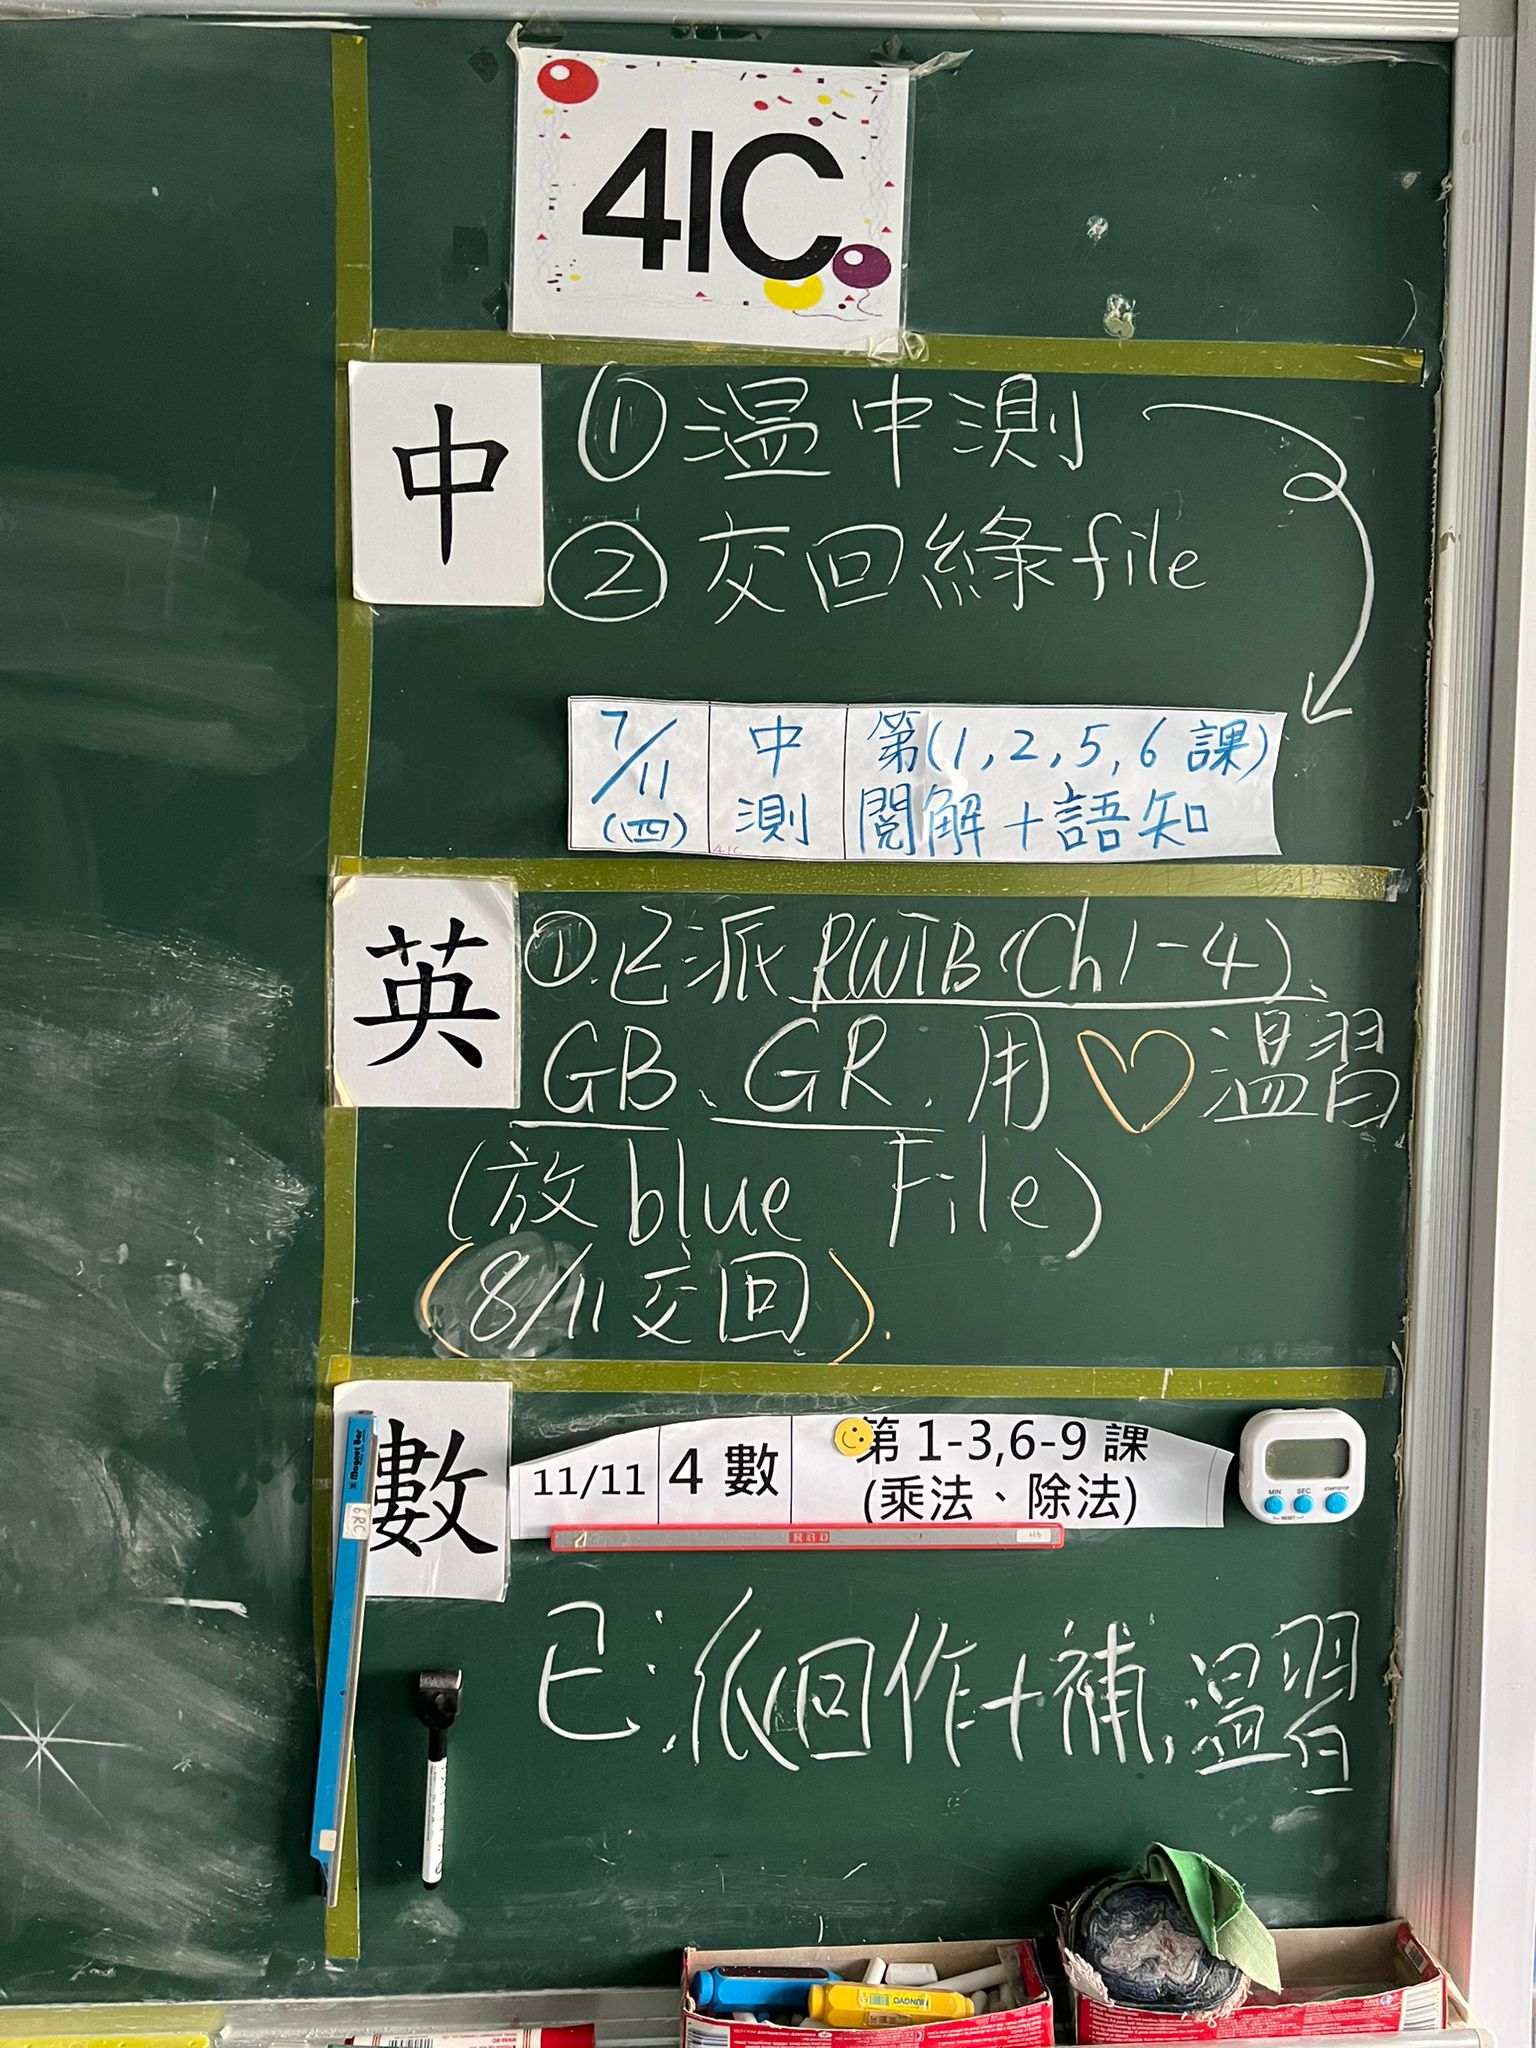 41C
中
①温中測
②交回綠file
7/11
(四)
中
測
41C
第(1,2,5,6課)
閱解+語知
英
①.已派RWTB(Ch1-4)、
GB、GR、用♡温習
(放blue File)
(8/11交回).
數
Magnet Bar
6RC
11/11
4 數
第 1-3,6-9 課
(乘法、除法)
MIN SEC START/STOP
RESET
已派回作+補,温習